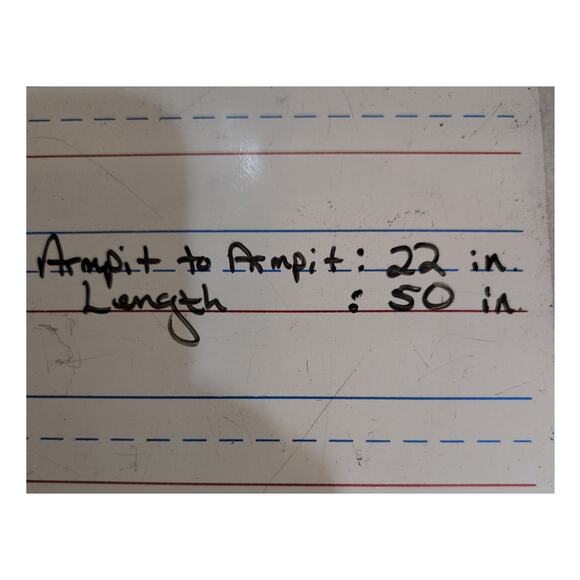 Armpit to Armpit: 22 in.
Length : 50 in.